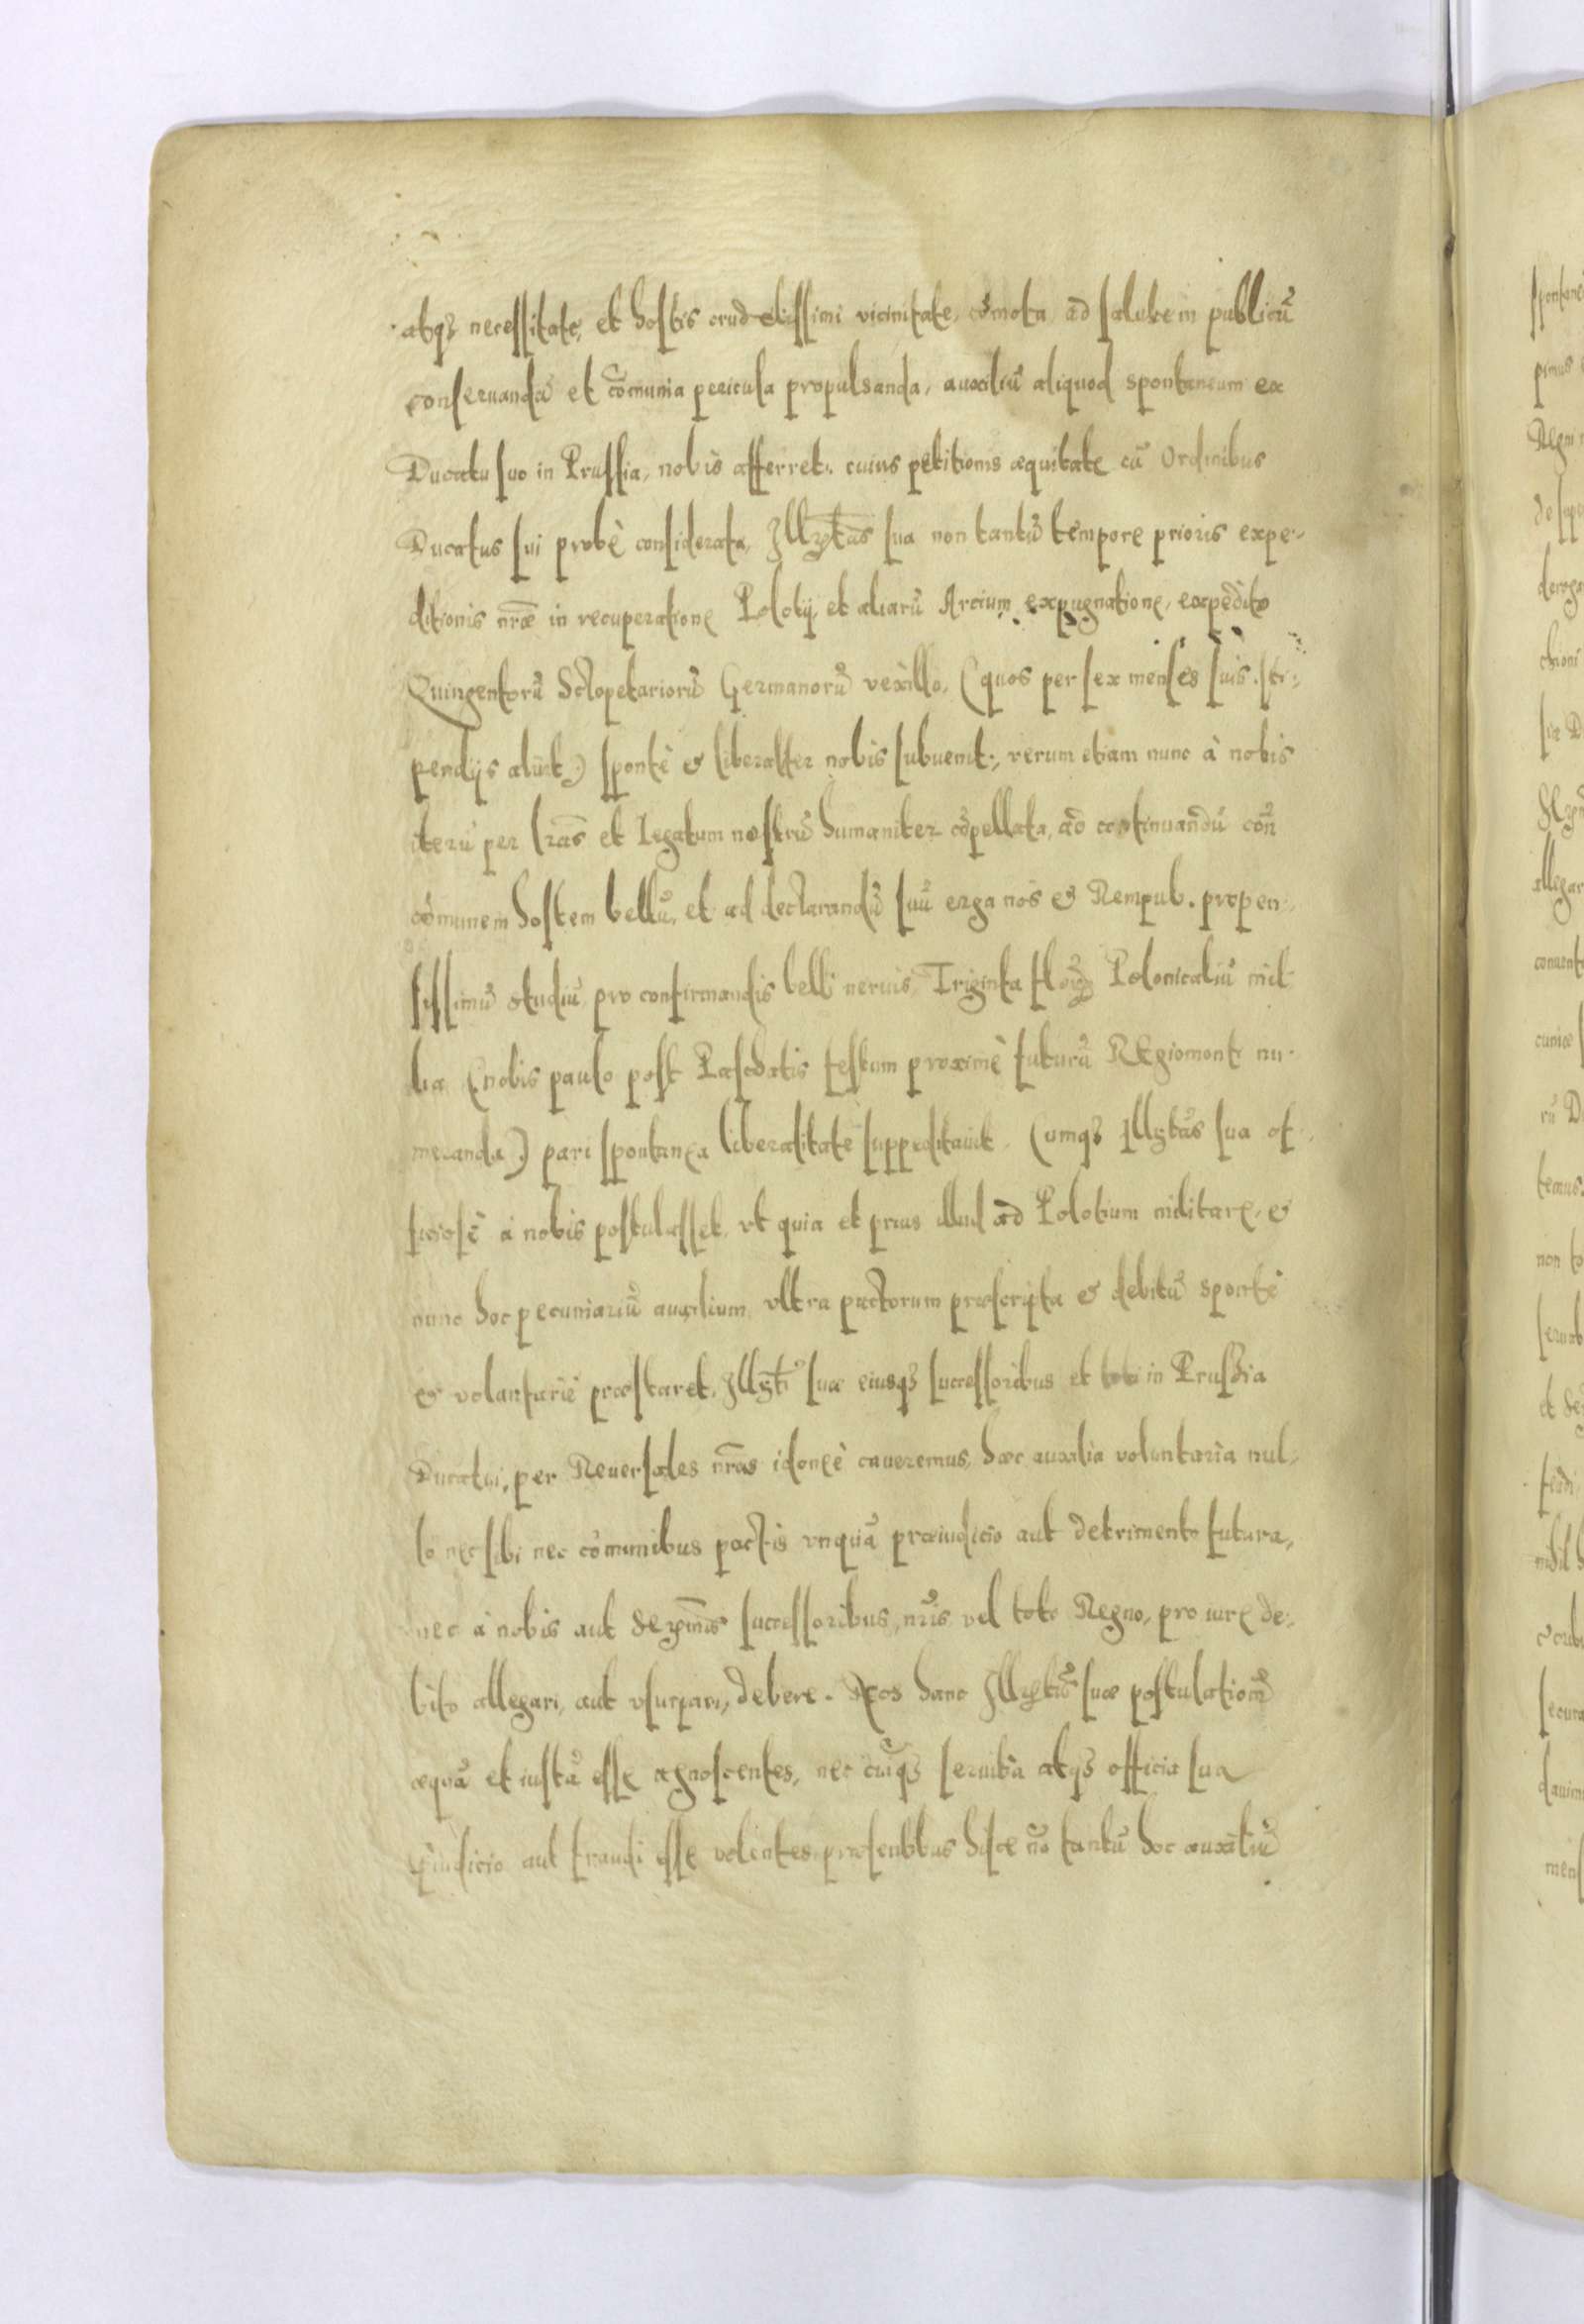 atqꝫ necessitate, et hostis crudelissimi vicinitate, cõmota, ad salutem publicũ
conseruandã et cõmunia pericula propulsanda, auxiliũ aliquod spontaneum ex
Ducatu suo in Prussia, nobis afferret. cuius petitionis æquitate cũ Ordinibus
Ducatus sui probè considerata, Illꝫtas sua non tantũ tempore prioris expe-
ditionis nr̃æ in recuperatione Polotij, et aliarũ Arcium expugnatione, expedito
Quingentorũ Sclopetariorũ Germanorũ vexillo, (quos per sex menses suis sti-
pendijs aluit) spontè & liberaliter nobis subuenit, verum etiam nunc à nobis
iterũ per lr̃as et legatum nostrũ humaniter cõpellata, ad continuandũ con̄
cõmunem hostem bellũ, et ad declarandũ suũ erga nos & Rempub. propen-
sissimũ studiũ, pro confirmandis belli neruis, Triginta flor̃ Polonicaliũ mil-
lia (nobis paulo post Paschatis festum proximè futurũ Regiomonti nu-
meranda) pari spontanea liberalitate suppeditauit. Cumqꝫ Illꝫtas sua of-
ficiosè à nobis postulasset, vt quia et prius illud ad Polotium militare, &
nunc hoc pecuniariũ auxilium vltra pactorum præscripta & debitũ spontè
& voluntariè præstaret, Illꝫti suæ eiusqꝫ successoribus et toti in Prussia
Ducatui, per Reuersales nr̃as idoneè caueremus, hæc auxilia voluntaria nul-
lo nec sibi nec cõmunibus pactis vnquã præiudicio aut detrimento futura,
nec à nobis aut Serꝫmis successoribus nr̃is vel toto Regno, pro iure de-
bito allegari, aut vsurpari, debere. Nos hanc Illꝫtis suæ postulationẽ
æquã et iustã esse agnoscentes, nec cuiqꝫ seruitia atqꝫ officia sua
p̃iudicio aut fraudi esse volentes, præsentibus hisce nõ tantũ hoc auxiliũ